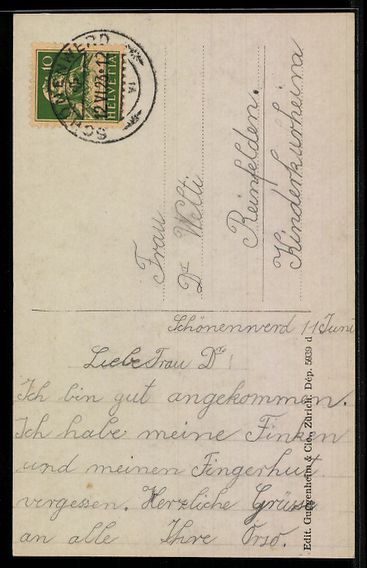 10
HELVETIA
SCHÖNENWERD
12.VI.23.-12
Frau
Dr Welti
Reinfelden.
Kinderkurheim
Schönenwerd 11 Juni
Liebe Frau Dr!
Ich bin gut angekommen.
Ich habe meine Finken
und meinen Fingerhut
vergessen. Herzliche Grüsse
an alle Ihre Orso.
Edit. Guggenheim & Cie., Zürich, Dép. 5939 d